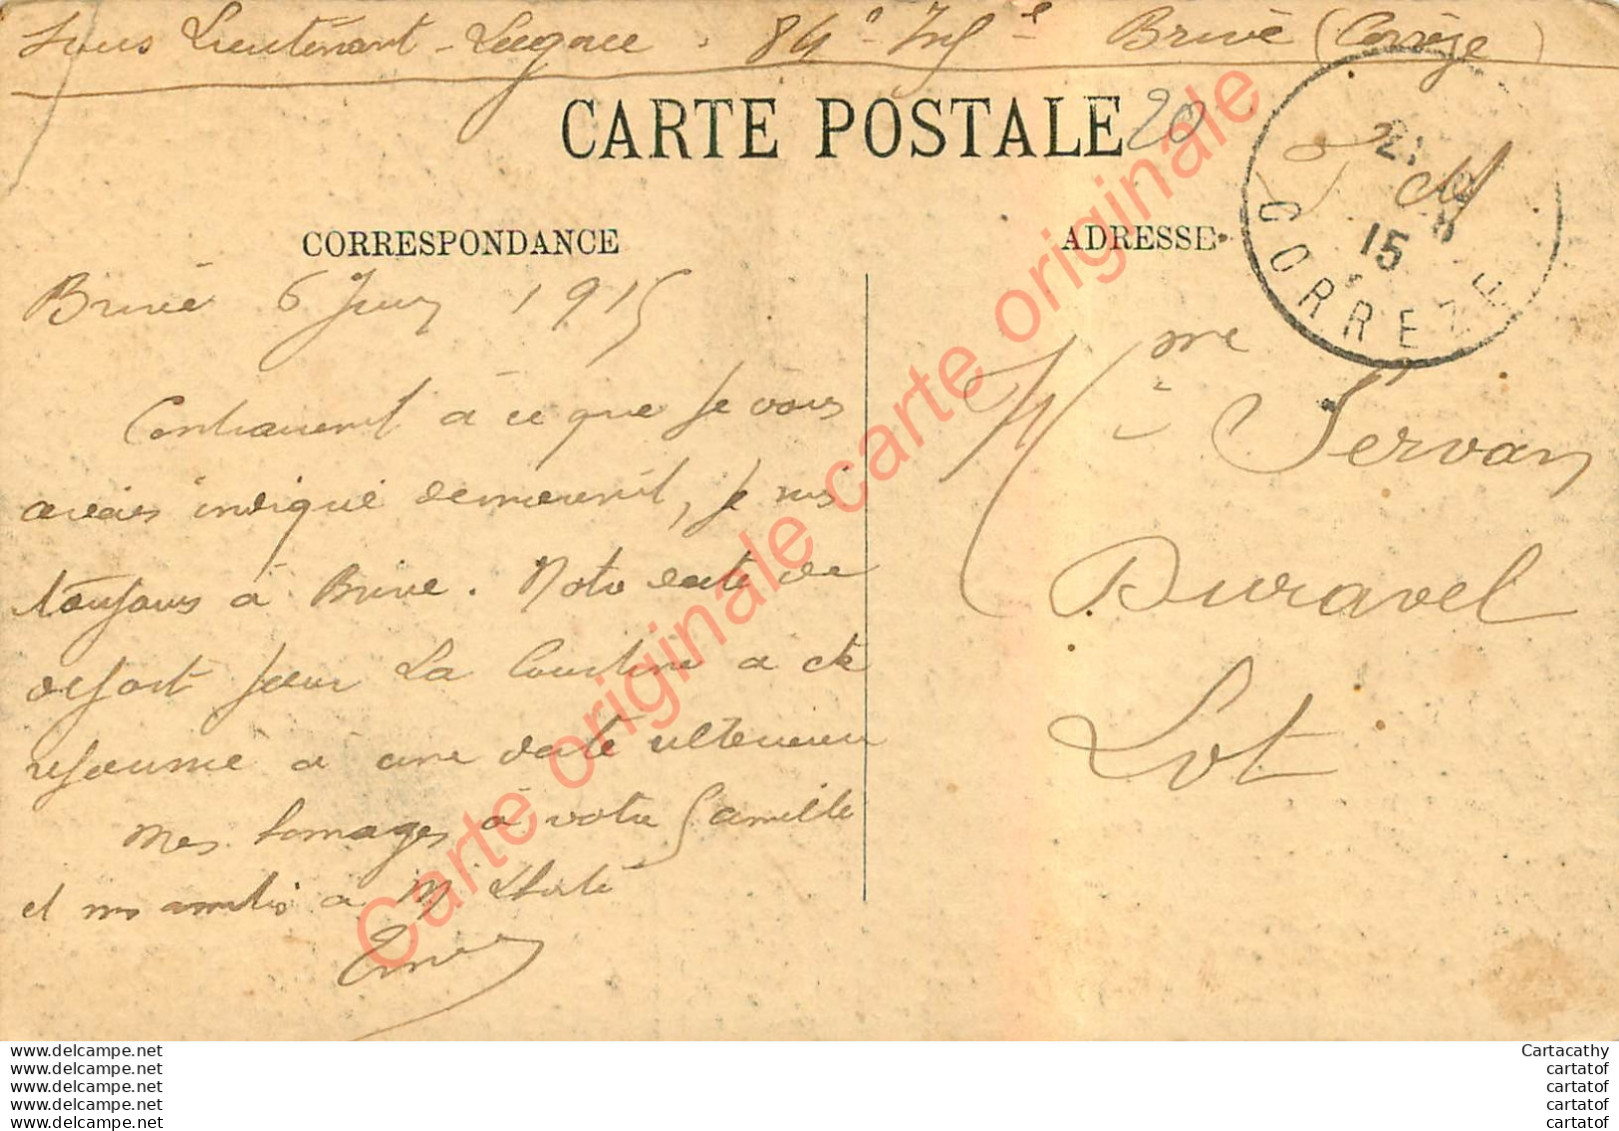 Sous Lieutenant - Lugace . 84e Infie Brive (Corrèze)
CARTE POSTALE
20
F M
15
CORREZE
CORRESPONDANCE
ADRESSE
Brive 6 Juin 1915
Contrairement à ce que je vous
avais indiqué , je suis
toujours à Brive. Notre date de
départ pour La Courtine a été
à une date ultérieure
Mes homages à votre famille
et mes amitiés à M
Mme Servan
Duravel
Lot
Carte originale carte originale carte originale
www.delcampe.net
www.delcampe.net
www.delcampe.net
www.delcampe.net
www.delcampe.net
Cartacathy
cartatof
cartatof
cartatof
cartatof